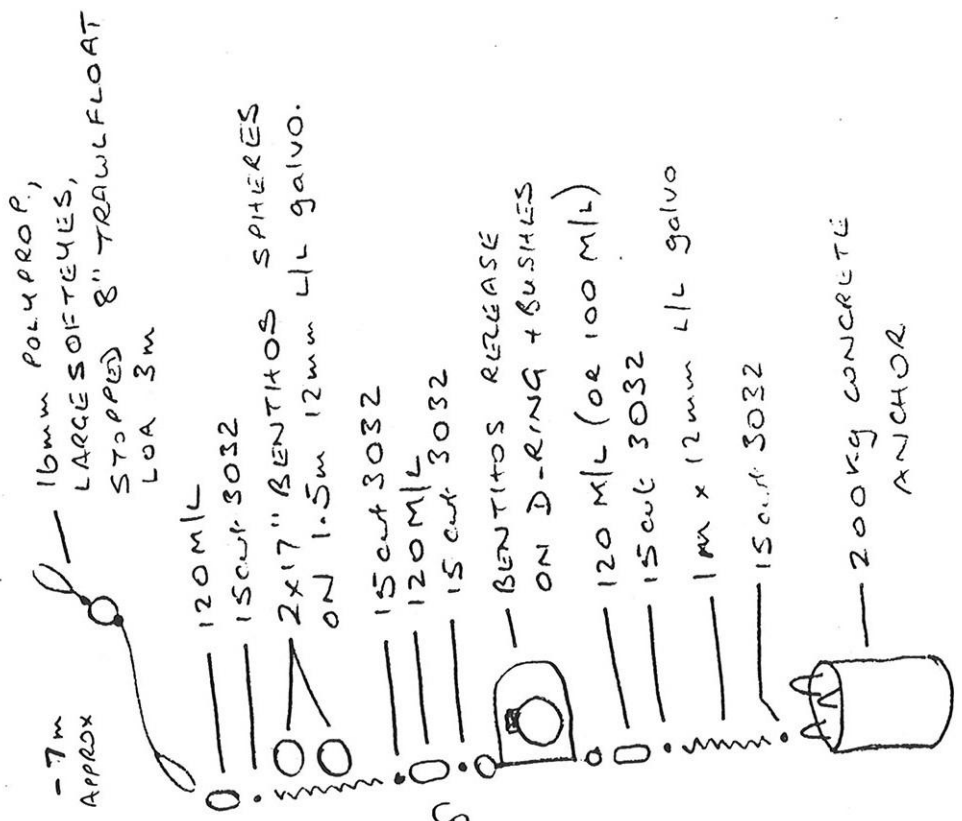 - 7m
APPROX
16mm POLYPROP.,
LARGE SOFT EYES,
STOPPED 8" TRAWLFLOAT
LOA 3m
120 M/L
15cwt 3032
2x17" BENTHOS SPHERES
ON 1.5m 12mm L/L galvo.
15cwt 3032
120 M/L
15 cwt 3032
BENTHOS RELEASE
ON D-RING + BUSHES
120 M/L (OR 100 M/L)
15cwt 3032
1m x 12mm L/L galvo
15cwt 3032
200kg CONCRETE
ANCHOR